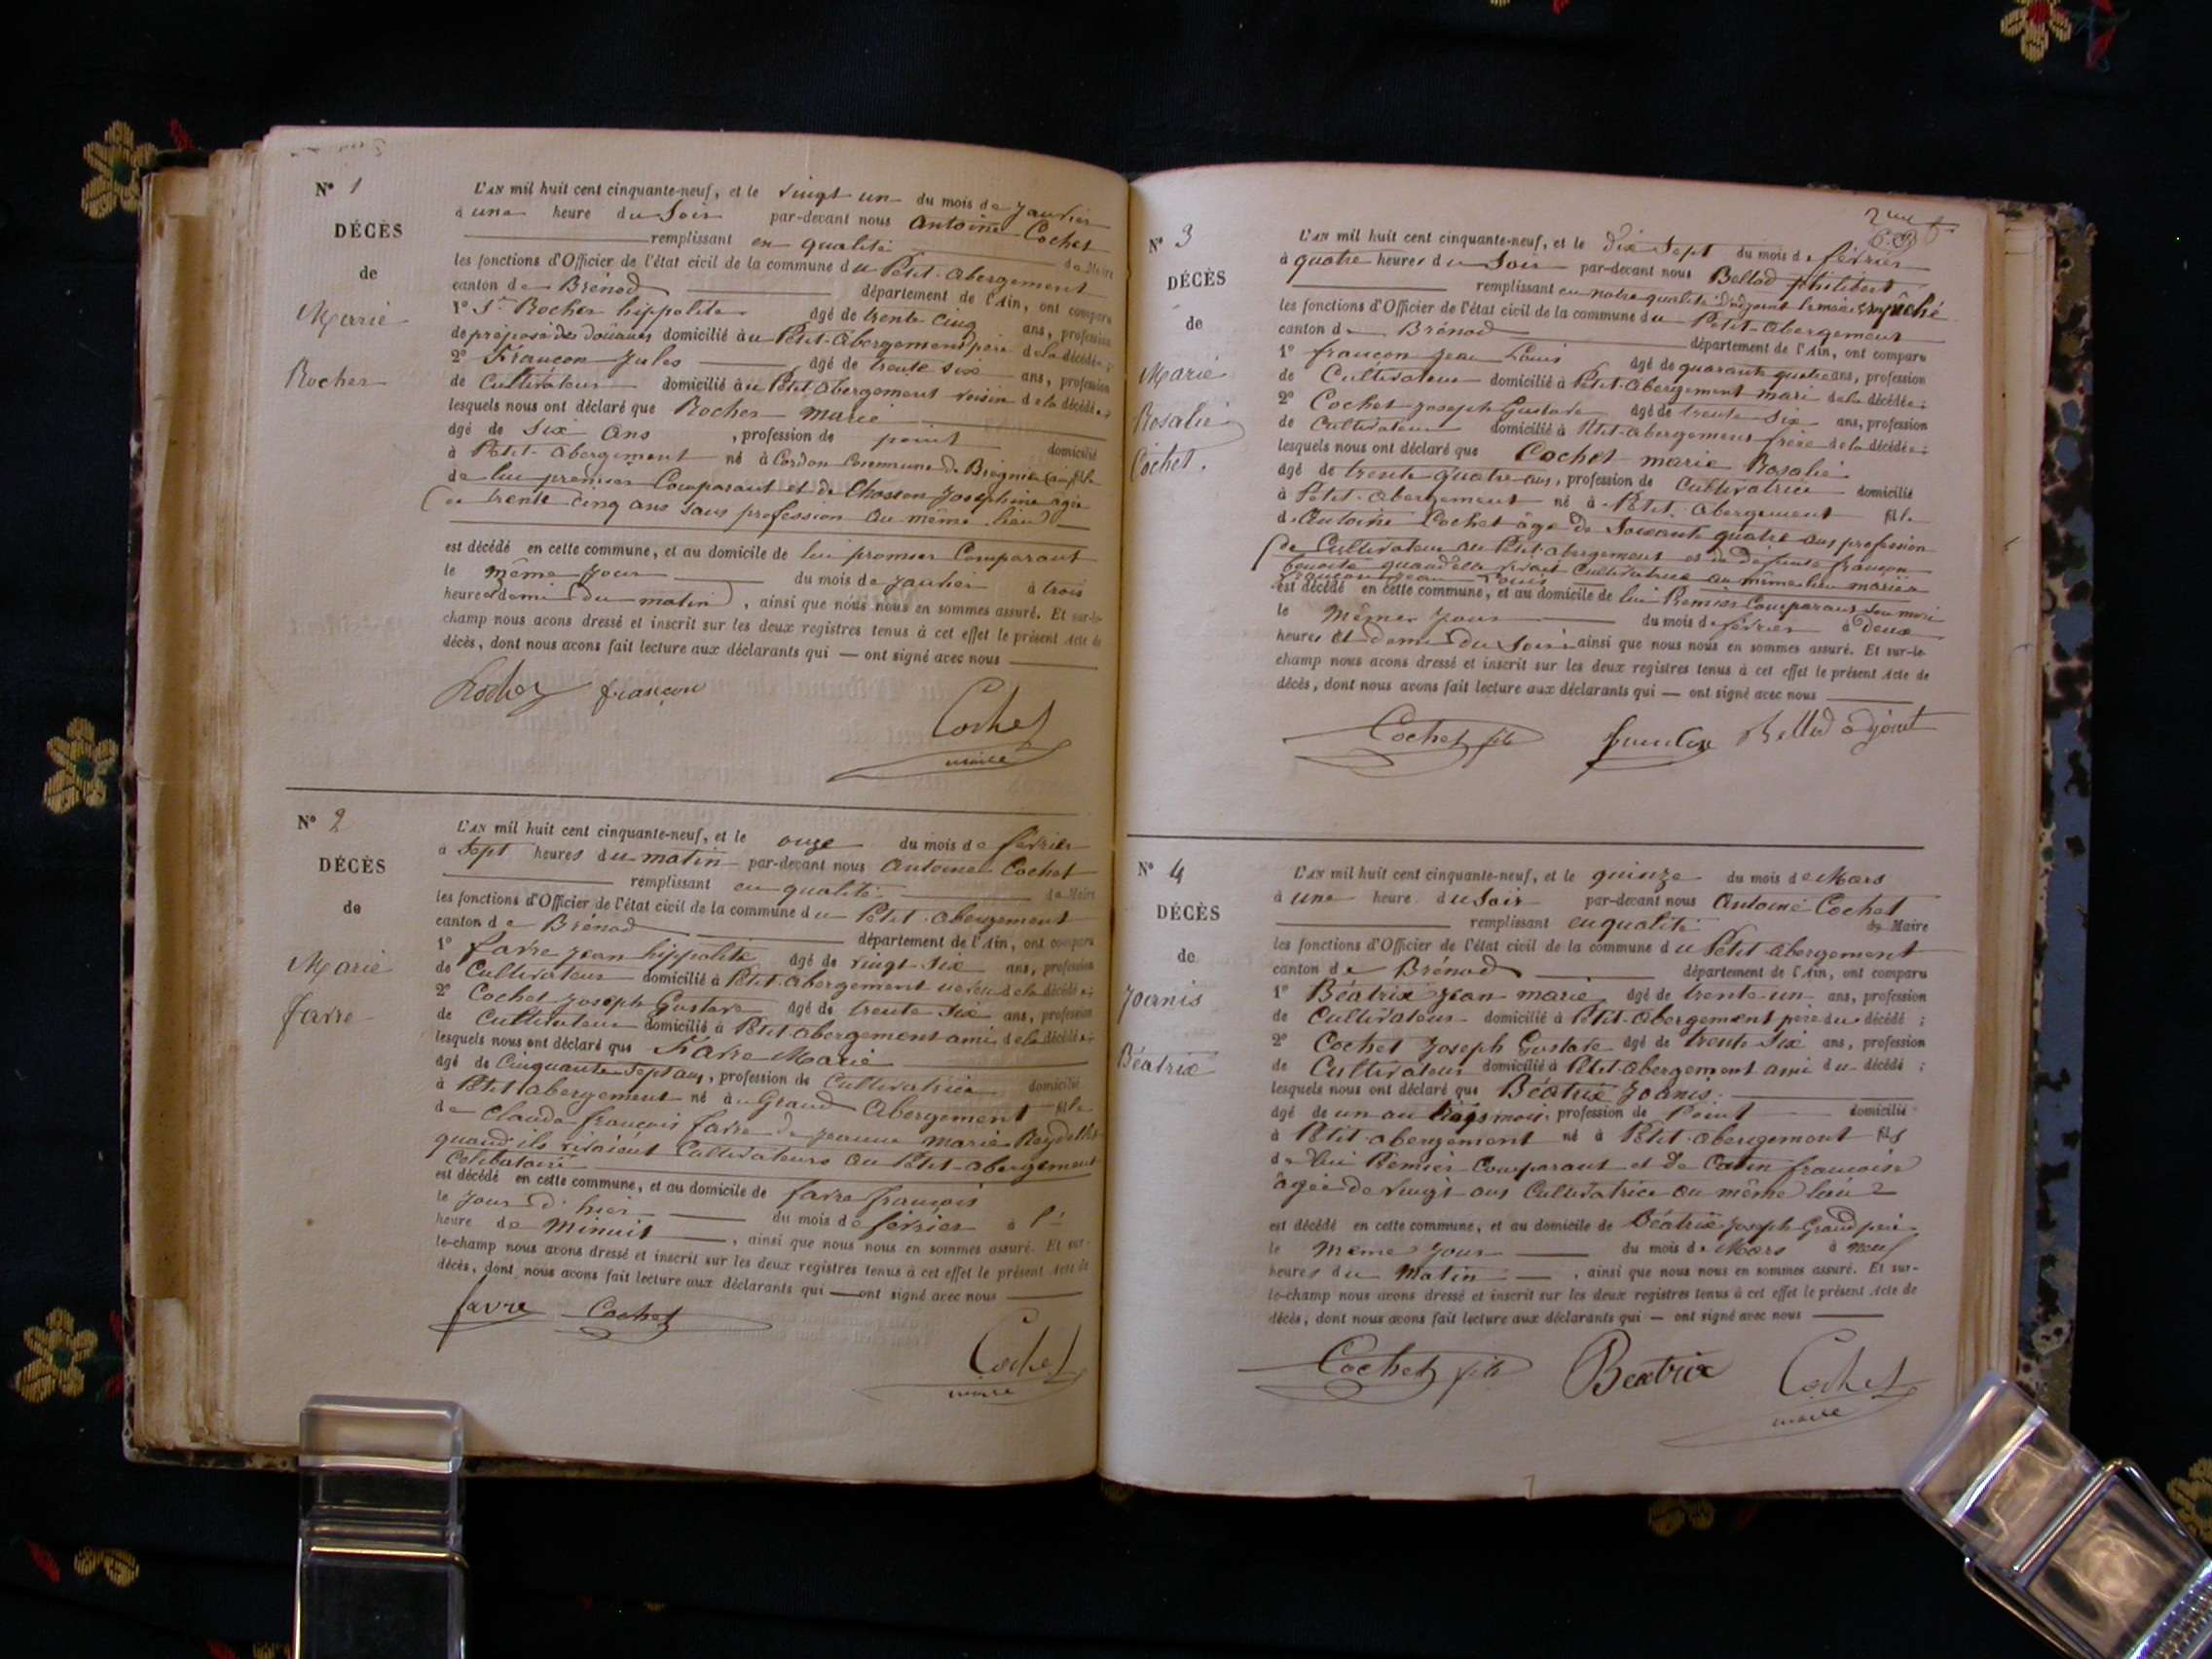 N° 1
DÉCÈS
de
Marie
Rocher
L'AN mil huit cent cinquante-neuf, et le vingt un du mois de Janvier
à une heure du Soir par-devant nous Antoine Cochet
remplissant en qualité de Maire
les fonctions d'Officier de l'état civil de la commune du Petit-Abergement
canton de Brénod département de l'Ain, ont comparu
1° Sr Rocher hippolite âgé de trente cinq ans, profession
de préposé des douanes domicilié à u Petit-Abergement père de la décédée;
2° Françon Jules âgé de trente six ans, profession
de Cultivateur domicilié à u Petit Abergement voisin de la décédée;
lesquels nous ont déclaré que Rocher marie
âgé de Six ans, profession de point domicilié
à Petit-Abergement né à Cordon Commune de Bregnier (ain) fille
de lui premier Comparant et de Chosson Josephine âgée
de trente cinq ans sans profession au même lieu
est décédé en cette commune, et au domicile de lui premier Comparant
le même jour du mois de Janvier à trois
heures & demi du matin, ainsi que nous nous en sommes assuré. Et sur-le-
champ nous avons dressé et inscrit sur les deux registres tenus à cet effet le présent Acte de
décès, dont nous avons fait lecture aux déclarants qui — ont signé avec nous
Rocher françon
Cochet
maire
N° 2
DÉCÈS
de
Marie
favre
L'AN mil huit cent cinquante-neuf, et le onze du mois de février
à Sept heures du matin par-devant nous Antoine Cochet
remplissant en qualité de Maire
les fonctions d'Officier de l'état civil de la commune du Petit-Abergement
canton de Brénod département de l'Ain, ont comparu
1° favre jean hippolite âgé de vingt six ans, profession
de Cultivateur domicilié à Petit-Abergement neveu de la décédée;
2° Cochet Joseph Gustave âgé de trente Six ans, profession
de Cultivateur domicilié à Petit-Abergement ami de la décédée;
lesquels nous ont déclaré que Favre Marie
âgé de Cinquante Sept ans, profession de Cultivatrice domicilié
à Petit abergement né à u Grand Abergement fille
de Claude françois favre de jeanne marie Reydellet
quand ils vivaient Cultivateurs au Petit-Abergement
Célibataire
est décédé en cette commune, et au domicile de favre françois
le jour d'hier du mois de février à l'
heure de Minuit, ainsi que nous nous en sommes assuré. Et sur-
le-champ nous avons dressé et inscrit sur les deux registres tenus à cet effet le présent Acte de
décès, dont nous avons fait lecture aux déclarants qui — ont signé avec nous
favre Cochet
Cochet
maire
N° 3
DÉCÈS
de
Marie
Rosalie
Cochet.
L'AN mil huit cent cinquante-neuf, et le dix Sept du mois de février
à quatre heures du Soir par-devant nous Bellod philibert
remplissant en notre qualité d'adjoint le maire empêché
les fonctions d'Officier de l'état civil de la commune du Petit-Abergement
canton de Brénod département de l'Ain, ont comparu
1° françon jean Louis âgé de quarante quatre ans, profession
de Cultivateur domicilié à Petit-Abergement mari de la décédée;
2° Cochet Joseph Gustave âgé de trente Six ans, profession
de Cultivateur domicilié à Petit-Abergement frère de la décédée;
lesquels nous ont déclaré que Cochet marie Rosalie
âgé de trente quatre ans, profession de Cultivatrice domicilié
à Petit-Abergement né à Petit-Abergement fille
d'Antoine Cochet âgé de Soixante quatre ans profession
de Cultivateur au Petit-Abergement et de défunte françon
benoite quand elle vivait Cultivatrice au même lieu mariée
françon jean Louis
est décédé en cette commune, et au domicile de lui Premier Comparant son mari
le même jour du mois de février à deux
heures et demi du Soir ainsi que nous nous en sommes assuré. Et sur-le-
champ nous avons dressé et inscrit sur les deux registres tenus à cet effet le présent Acte de
décès, dont nous avons fait lecture aux déclarants qui — ont signé avec nous
Cochet fils Bellod adjoint
N° 4
DÉCÈS
de
Joanis
Béatrix
L'AN mil huit cent cinquante-neuf, et le quinze du mois de Mars
à une heure du Soir par-devant nous Antoine Cochet
remplissant en qualité de Maire
les fonctions d'Officier de l'état civil de la commune du Petit-Abergement
canton de Brénod département de l'Ain, ont comparu
1° Béatrix Jean marie âgé de trente-un ans, profession
de Cultivateur domicilié à Petit-Abergement père du décédé;
2° Cochet Joseph Gustave âgé de trente Six ans, profession
de Cultivateur domicilié à Petit-Abergement ami du décédé;
lesquels nous ont déclaré que Béatrix Joanis
âgé de un an trois mois, profession de Point domicilié
à Petit-abergement né à Petit-Abergement fils
de lui Premier Comparant et de Catin françoise
âgée de vingt ans Cultivatrice au même lieu
est décédé en cette commune, et au domicile de Béatrix Joseph Grand père
le même jour du mois de Mars à neuf
heures du Matin, ainsi que nous nous en sommes assuré. Et sur-
le-champ nous avons dressé et inscrit sur les deux registres tenus à cet effet le présent Acte de
décès, dont nous avons fait lecture aux déclarants qui — ont signé avec nous
Cochet fils Beatrix Cochet
maire